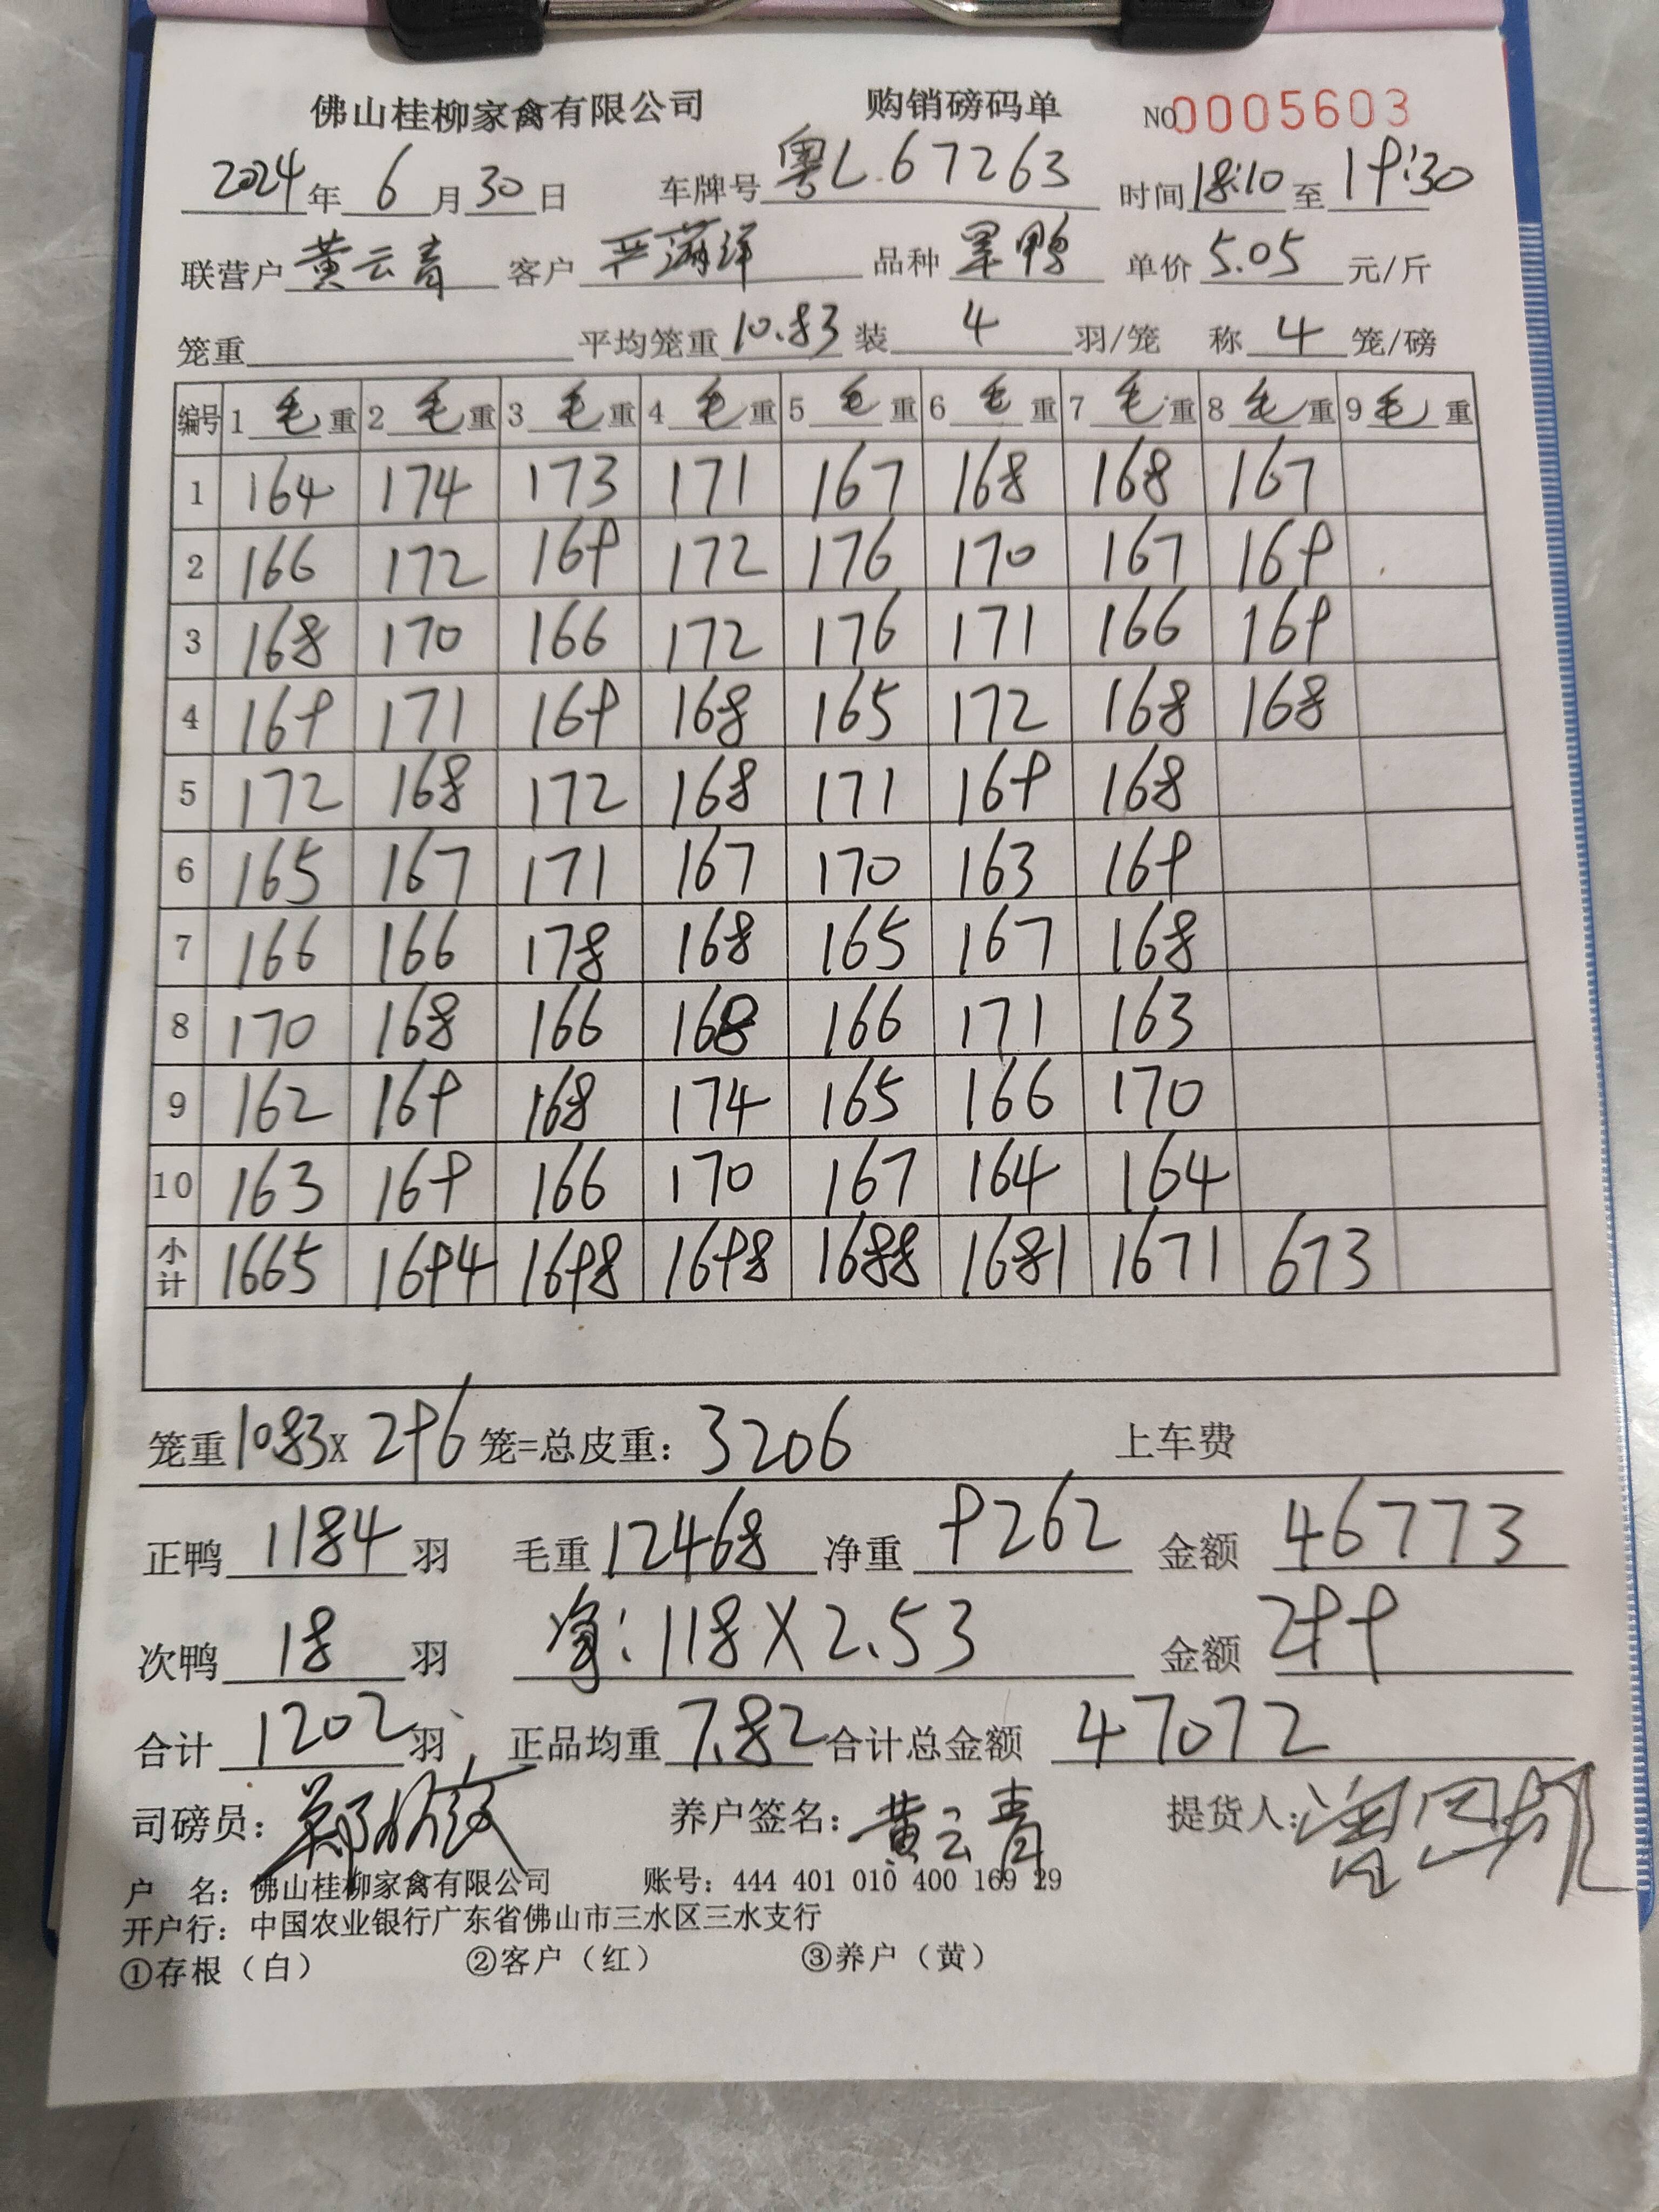 佛山桂柳家禽有限公司 购销磅码单 NO 0005603
2024年6月30日 车牌号粤L.67263 时间18:10至19:30
联营户黄云青 客户严满洋 品种黑鸭 单价5.05元/斤
笼重 平均笼重10.83装4羽/笼 称4笼/磅
编号 1毛重 2毛重 3毛重 4毛重 5毛重 6毛重 7毛重 8毛重 9毛重
1 164 174 173 171 167 168 168 167
2 166 172 169 172 176 170 167 169
3 168 170 166 172 176 171 166 169
4 169 171 169 168 165 172 168 168
5 172 168 172 168 171 169 168
6 165 167 171 167 170 163 169
7 166 166 178 168 165 167 168
8 170 168 166 168 166 171 163
9 162 169 168 174 165 166 170
10 163 169 166 170 167 164 164
小计 1665 1694 1698 1698 1688 1681 1671 673
笼重10.83X296笼=总皮重:3206 上车费
正鸭1184羽 毛重12468净重9262 金额46773
次鸭18羽 净:118X2.53 金额299
合计1202羽 正品均重7.82合计总金额47072
司磅员: 养户签名:黄云青 提货人:
户 名:佛山桂柳家禽有限公司 账号:444 401 010 400 169 29
开户行:中国农业银行广东省佛山市三水区三水支行
①存根(白) ②客户(红) ③养户(黄)